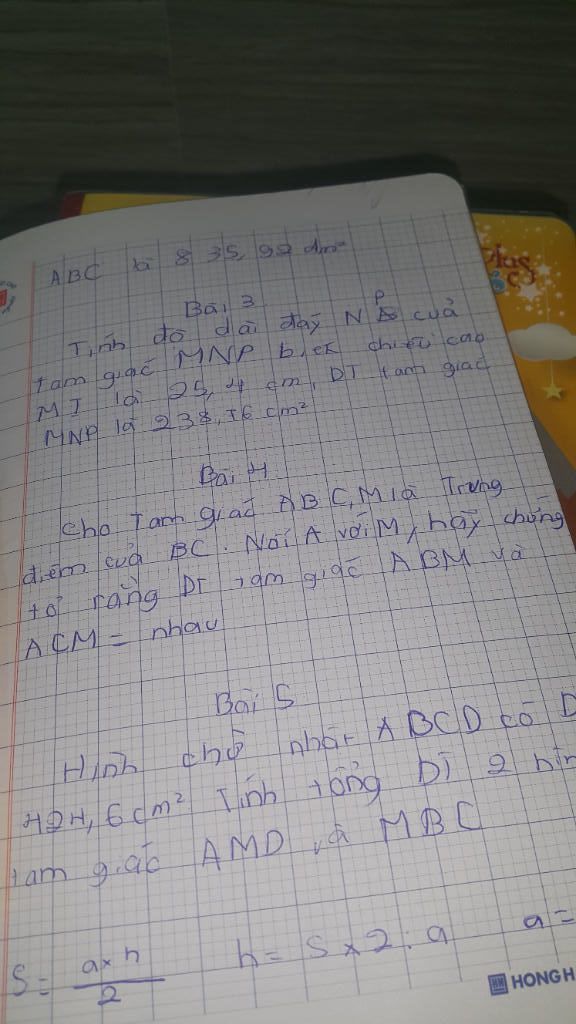 ABC là 8 35,92 dm²
Bài 3
Tính độ dài đáy NP của
tam giác MNP biết chiều cao
MI là 25,4 cm, DT tam giác
MNP là 238,76 cm²
Bài 4
Cho Tam giác ABC, M là Trung
điểm của BC. Nối A với M, hãy chứng
tỏ rằng DT tam giác ABM và
ACM = nhau
Bài 5
Hình chữ nhật ABCD có D
424,6 cm² Tính tổng DT 2 hìn
tam giác AMD và MBC
S = a×h/2 h = S × 2 : a a =
HONG H
Plus